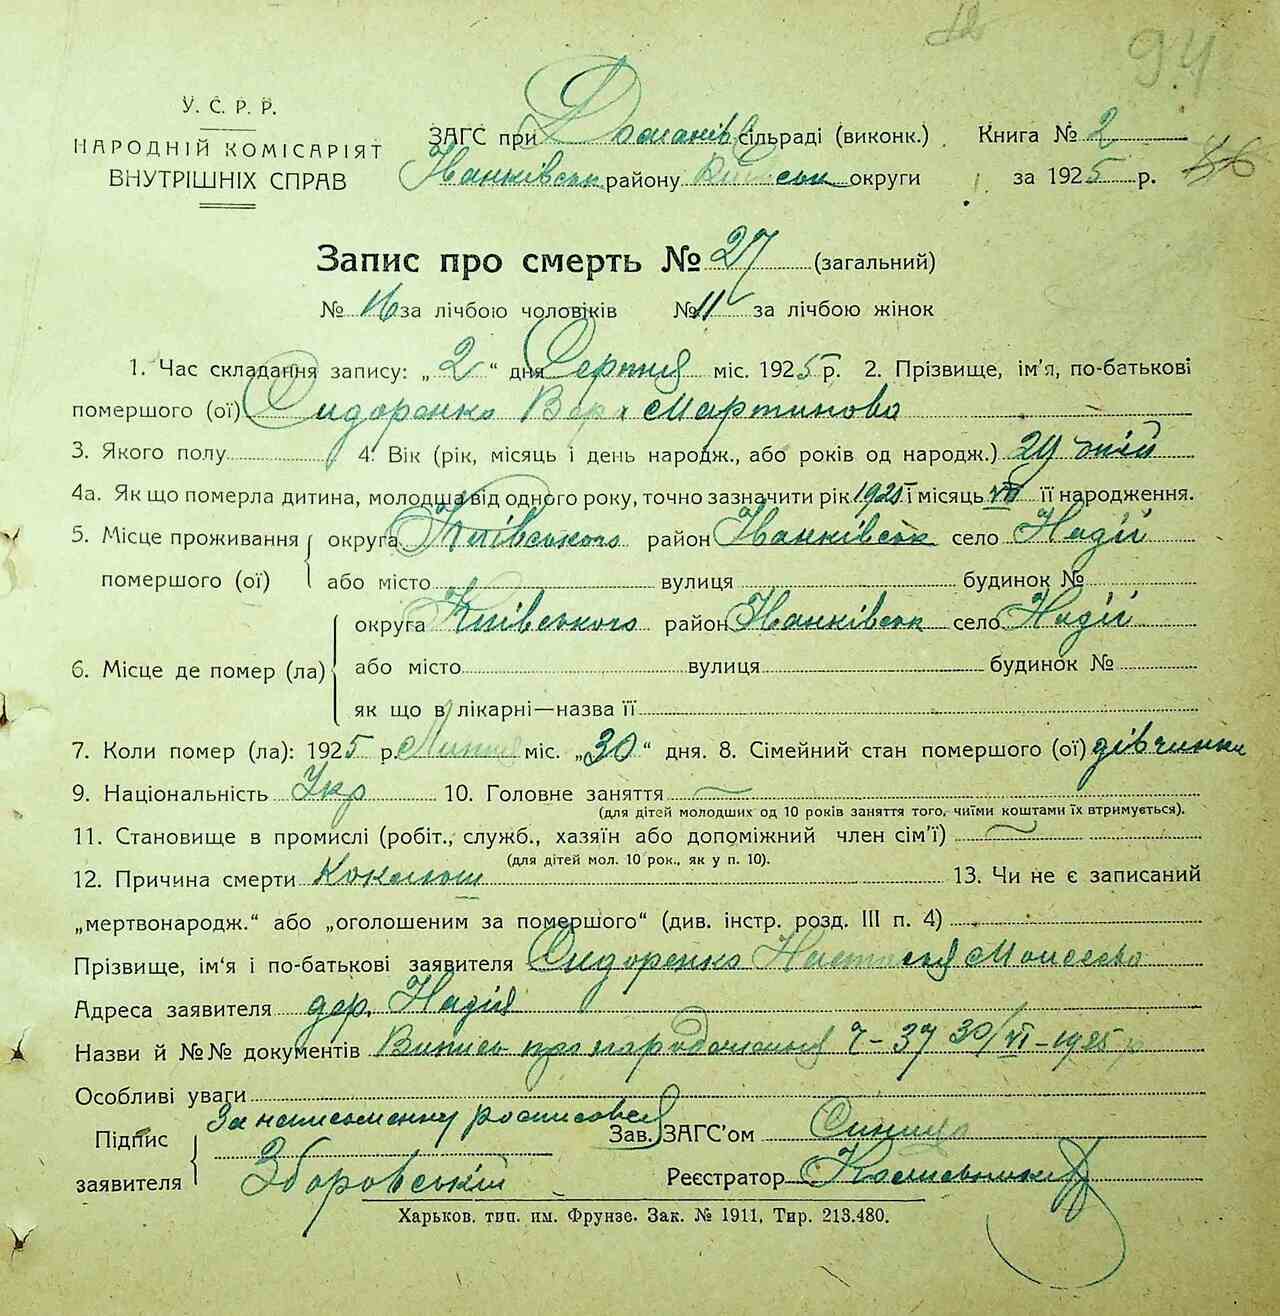 94
У. С. Р. Р.
НАРОДНІЙ КОМІСАРІЯТ
ВНУТРІШНІХ СПРАВ
ЗАГС при Доманів сільраді (виконк.) Книга № 2
Іванківськ району Київськ округи за 1925 р. 86
Запис про смерть № 27 (загальний)
№ 16 за лічбою чоловіків № 11 за лічбою жінок
1. Час складання запису: „ 2 “ дня Серпня міс. 1925 р. 2. Прізвище, ім'я, по-батькові
помершого (ої) Сидоренко Вера Мартинова
3. Якого полу 4. Вік (рік, місяць і день народж., або років од народж.) 29 дній
4а. Як що померла дитина, молодша від одного року, точно зазначити рік 1925 і місяць її народження.
5. Місце проживання помершого (ої) округа Київського район Іванківськ село Надії
або місто вулиця будинок №
6. Місце де помер (ла) округа Київського район Іванківськ село Надії
або місто вулиця будинок №
як що в лікарні—назва її
7. Коли помер (ла): 1925 р. міс. „30“ дня. 8. Сімейний стан помершого (ої) дівчинка
9. Національність Укр 10. Головне заняття
(для дітей молодших од 10 років заняття того, чиїми коштами їх втримується).
11. Становище в промислі (робіт., служб., хазяїн або допоміжний член сім'ї)
(для дітей мол. 10 рок., як у п. 10).
12. Причина смерти Коклюш 13. Чи не є записаний
„мертвонародж.“ або „оголошеним за помершого“ (див. інстр. розд. III п. 4)
Прізвище, ім'я і по-батькові заявителя Сидоренко Настасья Моисеева
Адреса заявителя дер. Надія
Назви й №№ документів Випись про народження 7-37 30/VI-1925 р
Особливі уваги
Підпис заявителя За неписьменну росписовся
Зборовський
Зав. ЗАГС'ом Синиця
Реєстратор
Харьков. тип. им. Фрунзе. Зак. № 1911, Тир. 213.480.